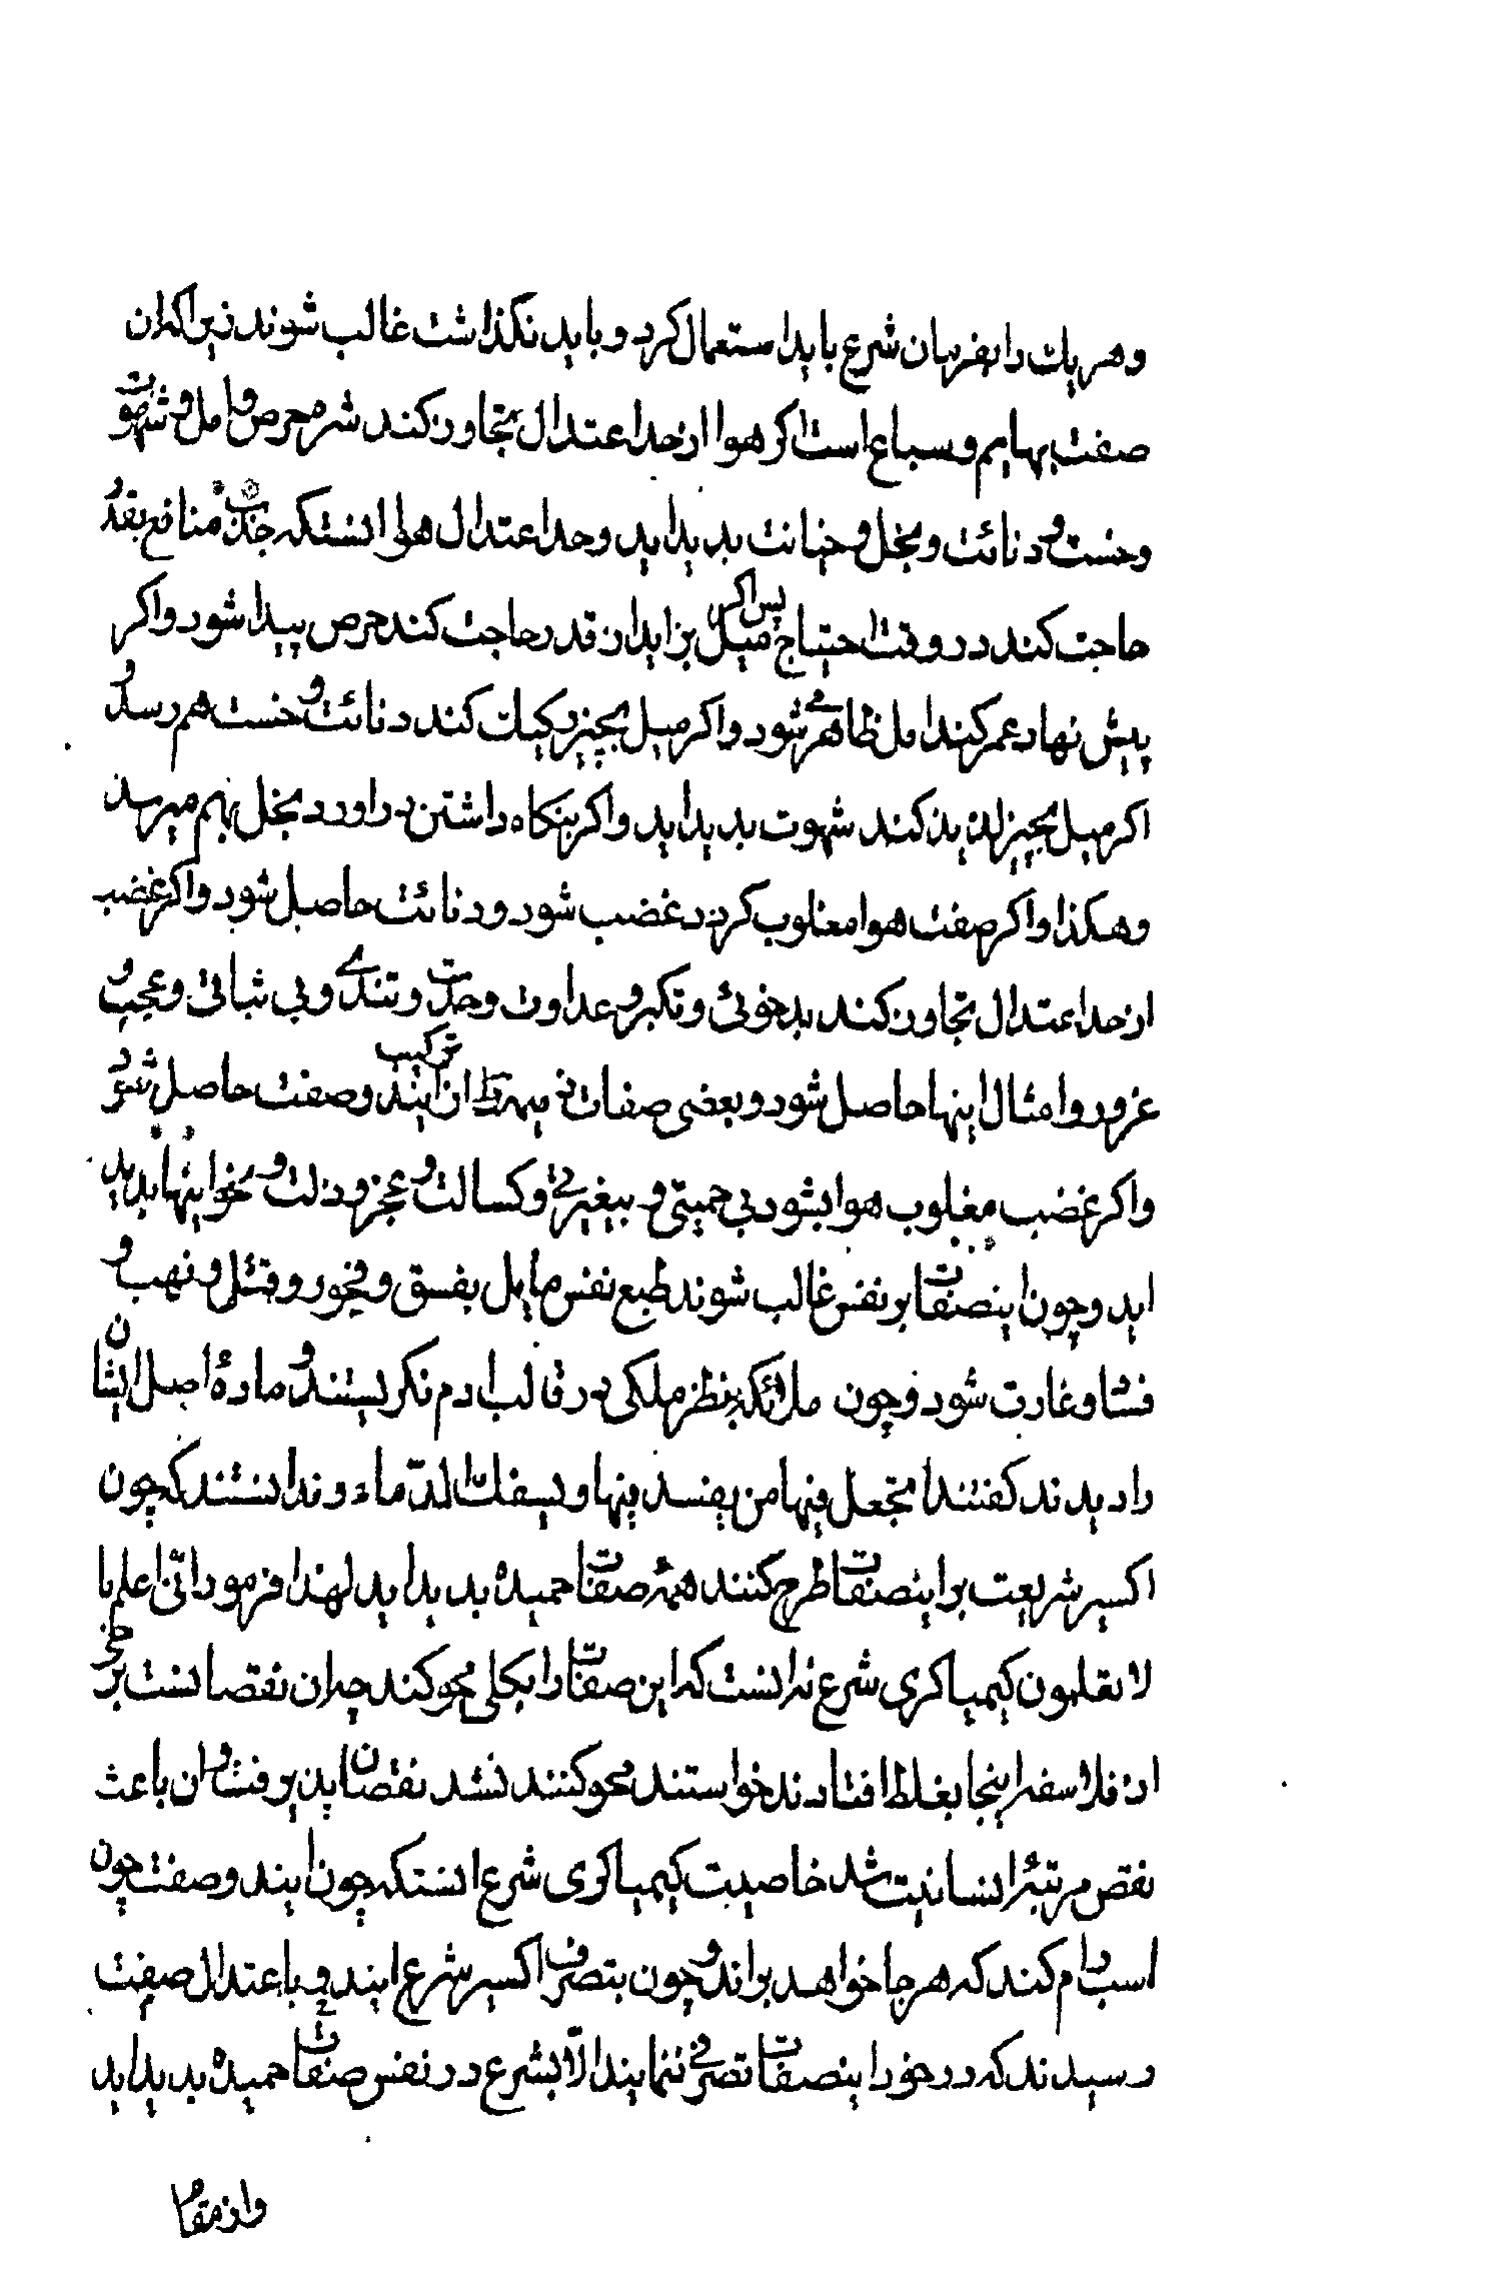 و هر یك را بفرمان شرع باید استعمال کرد و باید نکذاشت غالب شوند زیرا که ان
صفت بهایم و سباع است اکر هوا از حد اعتدال تجاوز کند شره و حرص و امل و شهوت
و خست و دنائت و بخل و خیانت بدید اید و حد اعتدال هوا انستکه جذب منافع بقدر
حاجت کند در وقت احتیاج پس اکر میل بزاید از قدر حاجت کند حرص پیدا شود و اکر
پیش نهاد عمر کند امل ظاهر می شود و اکر میل بچیز رکیك کند دنائت و خست هم رسد و
اکر میل بچیز لذیذ کند شهوت بدید اید و اکر بنکاه داشتن در اورد بخل بهم میرسد
و هکذا و اکر صفت هوا مغلوب کردد غضب شود و دنائت حاصل شود و اکر غضب
از حد اعتدال تجاوز کند بدخوئی و تکبر و عداوت و حدت و تندی و بی ثباتی و عجب و
غرور و امثال اینها حاصل شود و بعضی صفات ذمیمه از ترکیب ایندو صفت حاصل شود
و اکر غضب مغلوب هوا بشود بی حمیتی و بیغیرتی و کسالت و عجز و ذلت و نحو اینها بدید
اید و چون اینصفات بر نفس غالب شوند طبع نفس مایل بفسق و فجور و قتل و نهب و
فساد و غارت شود و چون ملائکه بنظر ملکی در قالب ادم نکریستند و ماده اصل ایشان
را دیدند کفتند اتجعل فیها من یفسد فیها و یسفك الدّماء و ندانستند که چون
اکسیر شریعت بر اینصفات طرح کنند همه صفات حمیده بدید اید لهذا فرمود انّی اعلم ما
لا تعلمون کیمیاکری شرع نه انست که این صفات را بکلی محو کند چه ان نقصانست برخی
از فلاسفه اینجا بغلط افتادند خواستند محو کنند نشد نقصان پذیرفت و ان باعث
نقص مرتبه انسانیت شد خاصیت کیمیاکری شرع انستکه چون ایندو صفت چون
اسب رام کند که هر جا خواهد براند و چون بتصرف اکسیر شرع ایندو باعتدال صفت
رسیدند که در خود اینصفات تصرفی ننمایند الّا بشرع در نفس صفات حمیده بدید اید
و از مقام